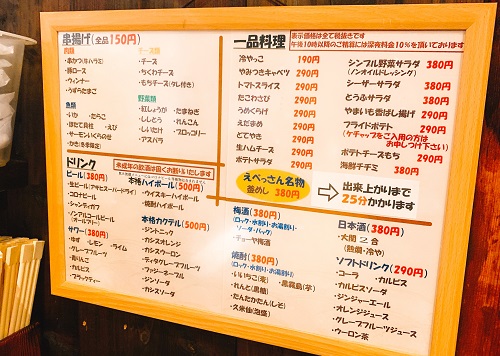 串揚げ(全品150円)
肉類
・串かつ(牛ハラミ)
・豚ロース
・ウィンナー
・うずらたまご
魚類
・いか ・たらこ
・ほたて貝柱 ・えび
・サーモン(いくらのせ)
・かき(冬季限定)
チーズ類
・チーズ
・ちくわチーズ
・もちチーズ(タレ付き)
野菜類
・紅しょうが ・たまねぎ
・ししとう ・れんこん
・しいたけ ・ブロッコリー
・アスパラ
一品料理
表示価格は全て税抜きです
午後10時以降のご精算には深夜料金10%を頂いております
冷やっこ 190円
やみつきキャベツ 290円
トマトスライス 290円
たこわさび 290円
うめくらげ 290円
えだまめ 290円
どてやき 290円
生ハムチーズ 290円
ポテトサラダ 290円
シンプル野菜サラダ 380円
(ノンオイルドレッシング)
シーザーサラダ 380円
とうふサラダ 380円
やまいも香ばし揚げ 290円
フライドポテト 290円
(ケチャップをご入用の方は
お申し付け下さい)
ポテトチーズもち 290円
海鮮チヂミ 380円
えべっさん名物
釜めし 380円
出来上がりまで
25分かかります
ドリンク
未成年の飲酒は固くお断りいたします
ビール(380円)
・生ビール(アサヒスーパードライ)
・コロナビール
・シャンディガフ
・ノンアルコールビール
(オールフリー)
サワー(380円)
・ゆず ・レモン ・ライム
・グレープフルーツ
・青りんご
・カルピス
・ブラッディー
本格ハイボール(500円)
・ウイスキーハイボール
・焼酎ハイボール
本格カクテル(500円)
・ジントニック
・カシスオレンジ
・カシスウーロン
・ディタグレープフルーツ
・ファジーネーブル
・ジンソーダ
・カシスソーダ
梅酒(380円)
(ロック・水割り・お湯割り・
ソーダ・パック)
・チョーヤ梅酒
焼酎(380円)
(ロック・水割り・お湯割り)
・いいちこ(麦) ・黒霧島(芋)
・れんと(黒糖)
・たんたかたん(しそ)
・久米仙(泡盛)
日本酒(380円)
・大関 2合
(熱燗・冷や)
ソフトドリンク(290円)
・コーラ ・カルピス
・カルピスソーダ
・ジンジャーエール
・オレンジジュース
・グレープフルーツジュース
・ウーロン茶